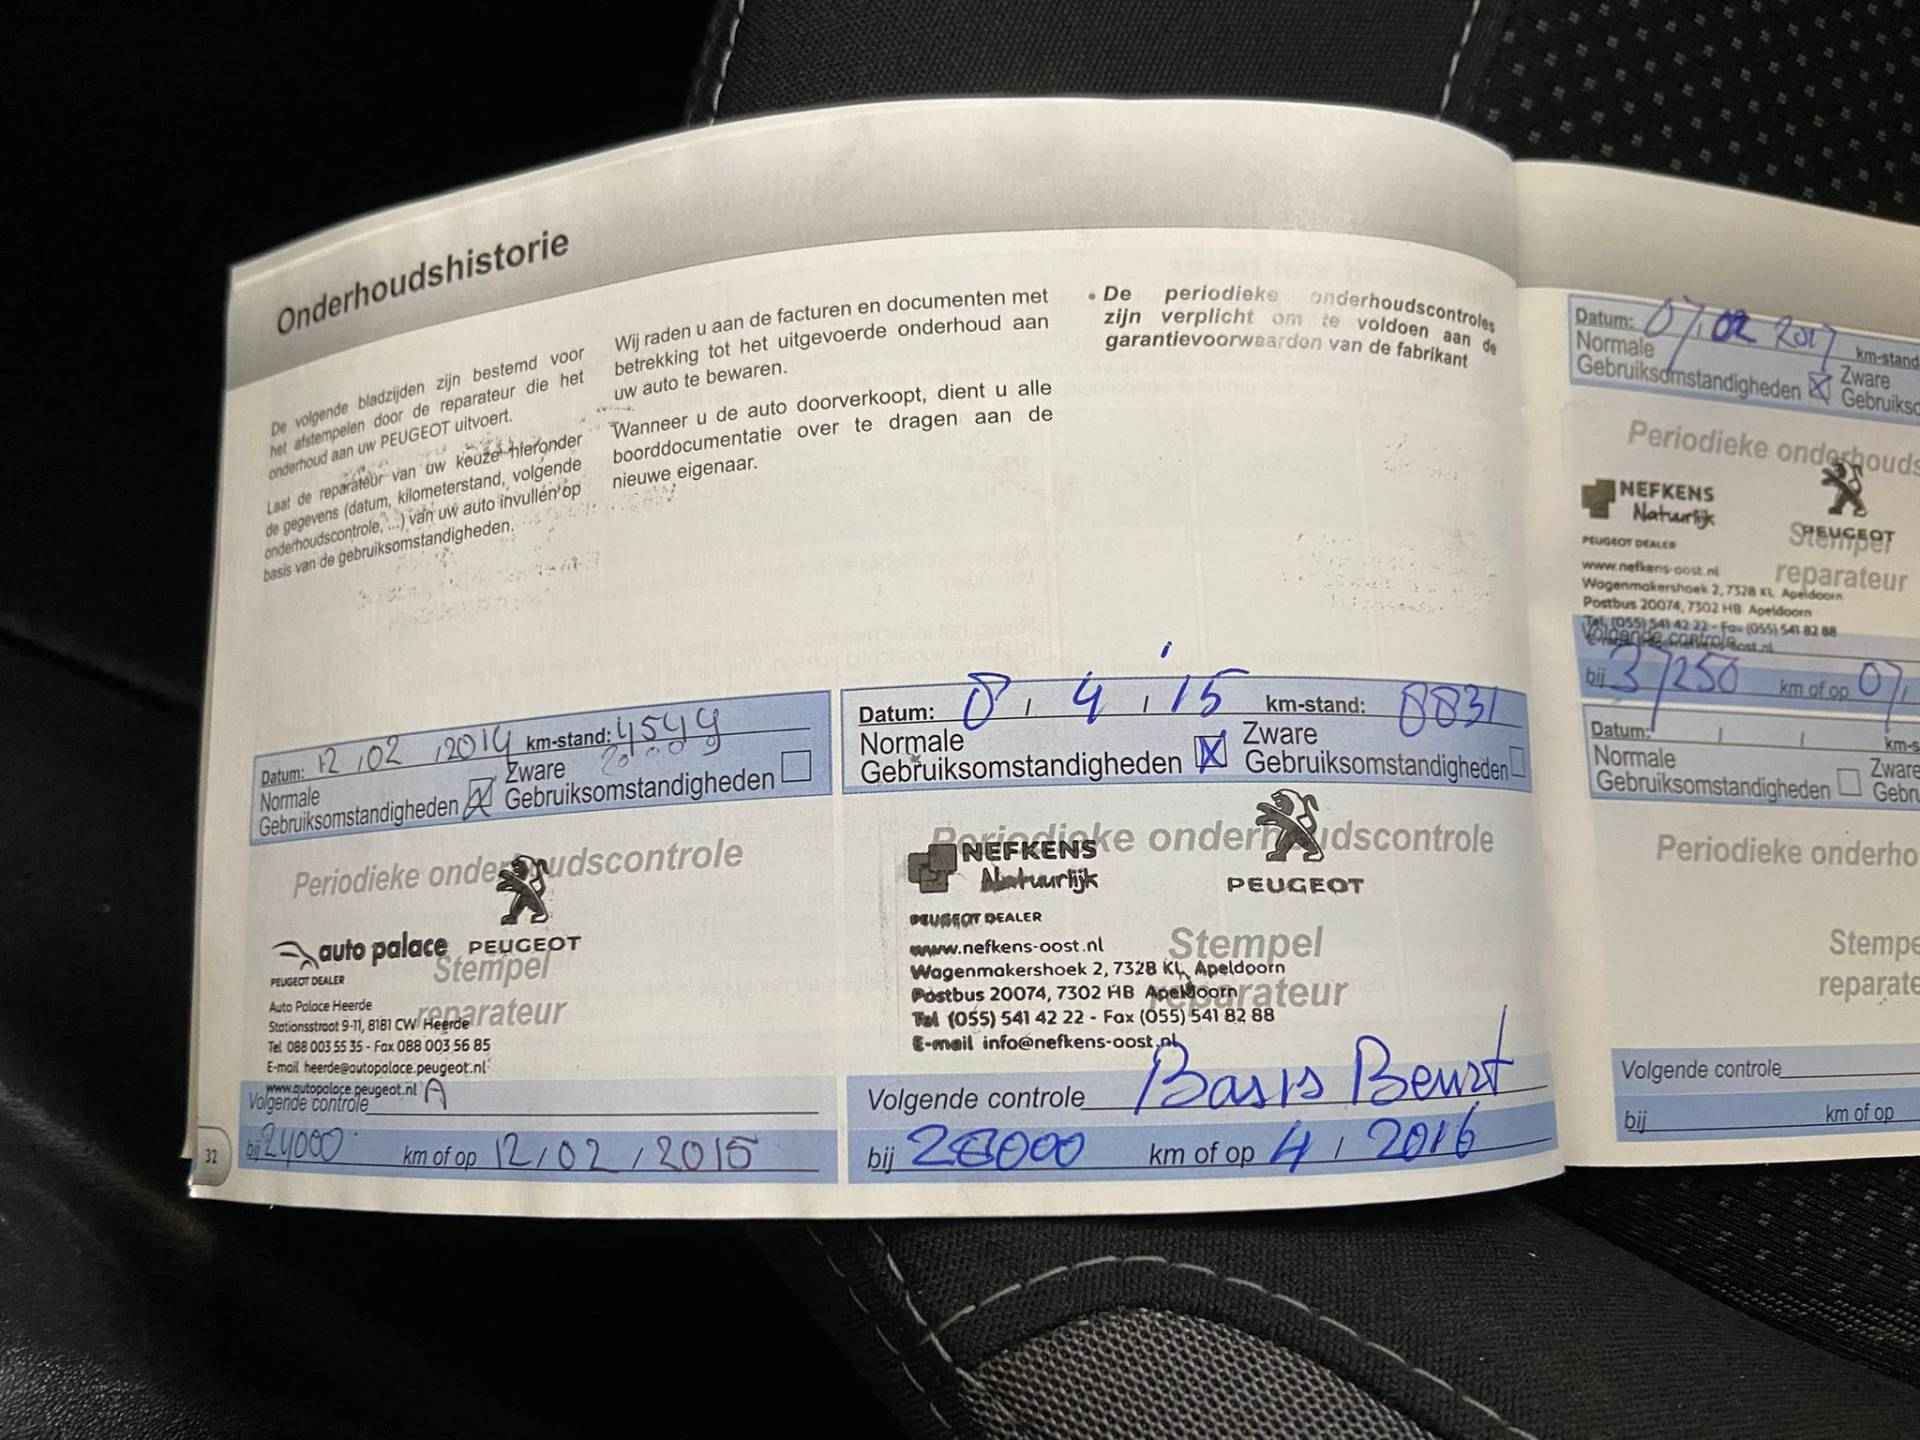 Onderhoudshistorie
De volgende bladzijden zijn bestemd voor
het afstempelen door de reparateur die het
onderhoud aan uw PEUGEOT uitvoert.
Laat de reparateur van uw keuze hieronder
de gegevens (datum, kilometerstand, volgende
onderhoudscontrole, ...) van uw auto invullen op
basis van de gebruiksomstandigheden.
Wij raden u aan de facturen en documenten met
betrekking tot het uitgevoerde onderhoud aan
uw auto te bewaren.
Wanneer u de auto doorverkoopt, dient u alle
boorddocumentatie over te dragen aan de
nieuwe eigenaar.
• De periodieke onderhoudscontroles
zijn verplicht om te voldoen aan de
garantievoorwaarden van de fabrikant
Datum: 12 , 02 , 2014 km-stand: 4549
Normale Zware
Gebruiksomstandigheden Gebruiksomstandigheden
Periodieke onderhoudscontrole
auto palace PEUGEOT
Stempel
PEUGEOT DEALER
Auto Palace Heerde
reparateur
Stationsstraat 9-11, 8181 CW Heerde
Tel 088 003 55 35 - Fax 088 003 56 85
E-mail heerde@autopalace.peugeot.nl
www.autopalace.peugeot.nl A
Volgende controle
bij 24000 km of op 12 / 02 / 2015
32
Datum: 8 , 4 , 15 km-stand: 8831
Normale Zware
Gebruiksomstandigheden Gebruiksomstandigheden
Periodieke onderhoudscontrole
NEFKENS
Natuurlijk PEUGEOT
PEUGEOT DEALER
Stempel
www.nefkens-oost.nl
Wagenmakershoek 2, 7328 KL Apeldoorn
Postbus 20074, 7302 HB Apeldoorn
reparateur
Tel (055) 541 42 22 - Fax (055) 541 82 88
E-mail info@nefkens-oost.nl
Volgende controle Basis Beurt
bij 28000 km of op 4 / 2016
Datum: 07 , 02 2017 km-stand
Normale Zware
Gebruiksomstandigheden
Periodieke
NEFKENS
Natuurlijk PEUGEOT
Stempel
PEUGEOT DEALER
www.nefkens-oost.nl
reparateur
Wagenmakershoek 2, 7328 KL Apeldoorn
Postbus 20074, 7302 HB Apeldoorn
Tel. (055) 541 42 22 - Fax (055) 541 82 88
Volgende controle
bij 37250 km of op 07
Datum:
Normale Zware
Gebruiksomstandigheden
Periodieke
Volgende controle
bij km of op